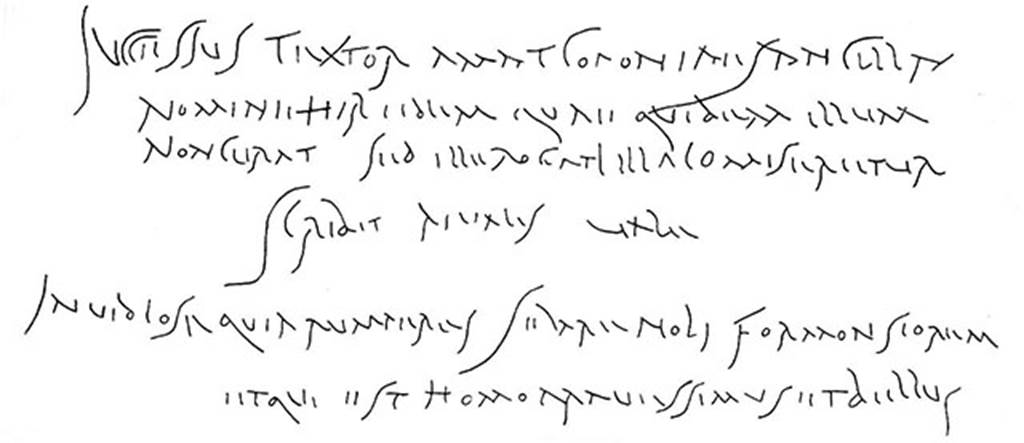 SUCCESSUS TEXTOR AMAT COPONIAES ANCILLA
NOMINE HIREDEM QUAE QUIDEM ILLUM
NON CURAT SED ILLE ROGAT ILLA COMISERETUR
SCRIBIT RIVALIS VALE
INVIDIOSE QUIA RUMPERES SEDARE NOLI FORMONSIOREM
ET QUI EST HOMO PRAVESSIMUS ET BELLUS